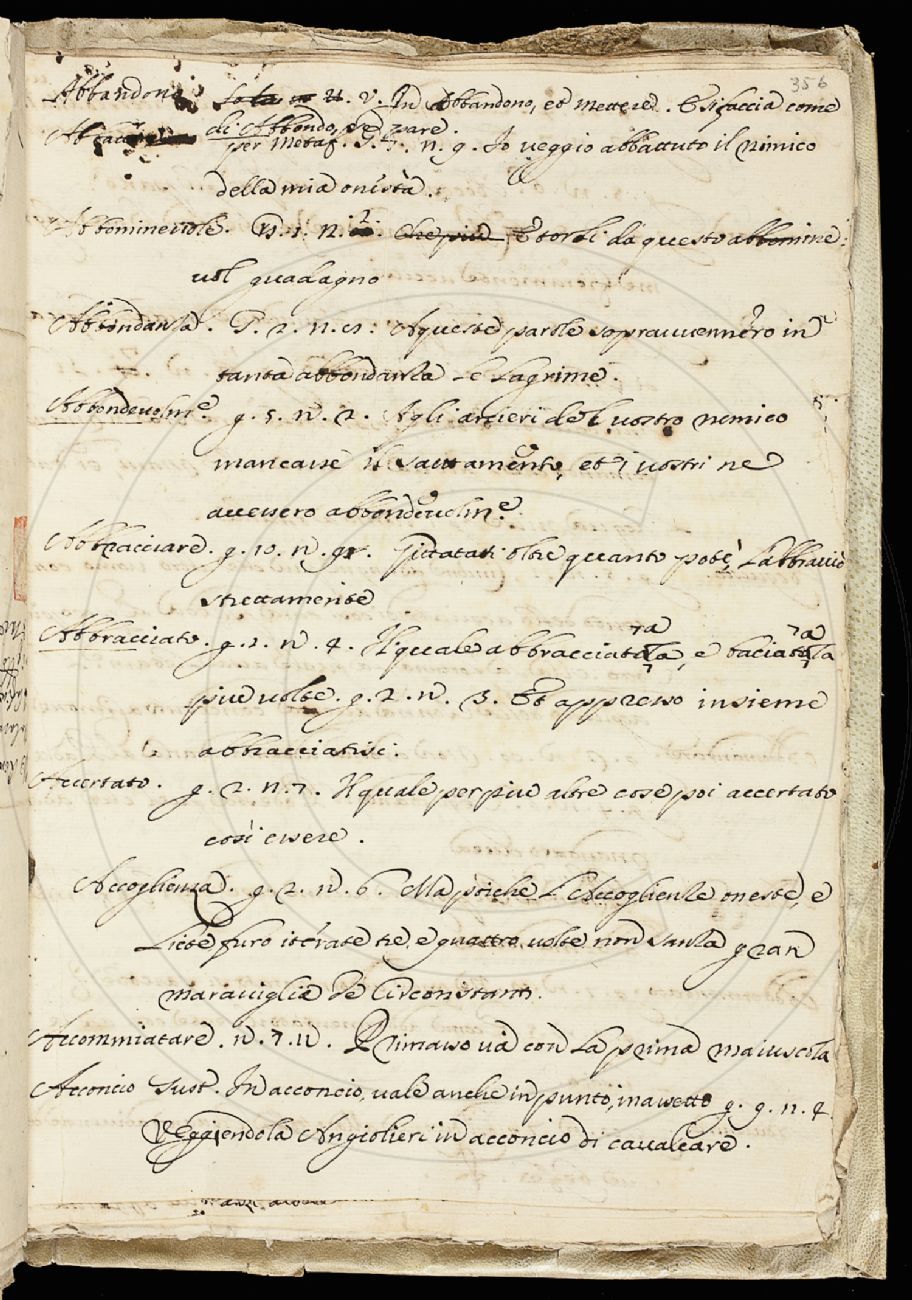 356
Abbandono ~~sola~~ N. V. In Abbandono, et Mettere. E si faccia come
di Abbondo, se pare.
Abbattuto per Metaf. g. 7. n. 9. Io veggio abbattuto il nimico
della mia onestà.
Abbominevole. n. 1. n. 2. ~~Che più~~ E torbi da questo abbomine-
vol guadagno
Abbondanza. g. 2. n. A queste parole sopravvennero in
tanta abbondanza le lagrime.
Abbondevolme. g. 5. n. 2. Agli arcieri del vostro nemico
mancasse il saettamento, et i vostri ne
avessero abbondevolme.
Abbracciare. g. 10. n. 9. oltre quanto poté, l'abbracciò
strettamente
Abbracciato. g. 2. n. 4. Il quale abbracciatala, e baciatala
piu volte. g. 2. n. 3. Et appresso insieme
abbracciatisi:
Accertato. g. 2. n. 7. Il quale per piu altre cose poi accertato
così essere.
Accoglienza. g. 2. n. 6. Ma poiche l'Accoglienze oneste, e
liete furo iterate tre, e quattro volte non sanza gran
maraviglia de Circonstanti.
Accommiatare. n. 7. n. Rimaso va con la prima maiuscola
Acconcio Sust. In acconcio, vale anche in punto, in assetto g. 9. n. 4.
Veggendola Angiolieri in acconcio di cavalcare.